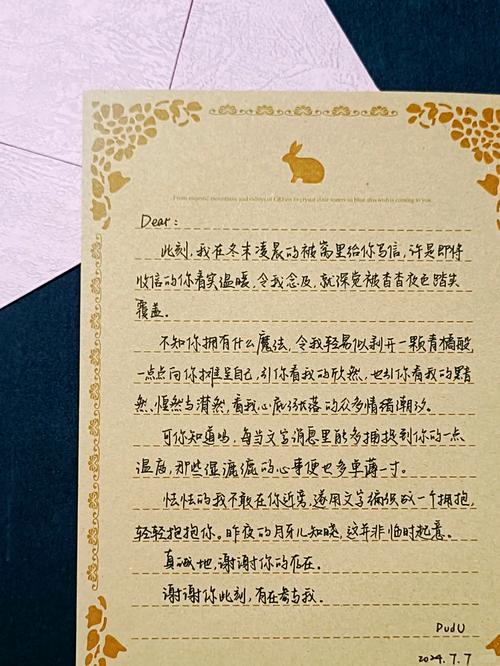 From majestic mountains and valleys of green to crystal clear waters so blue, this wish is coming to you.
Dear:
此刻,我在冬末凌晨的被窝里给你写信,许是即将
收信的你着实温暖,令我念及,就深觉被杳杳夜色踏实
覆盖。
不知你拥有什么魔法,令我轻易似剥开一颗青橘般
一点点向你摊呈自己,引你看我的欣然,也引你看我的黯
然、怅然与潸然,看我心底涨落的众多情绪潮汐。
可你知道吗,每当文字消息里能多捕捉到你的一点
温度,那些湿漉漉的心事便也多单薄一寸。
怯怯的我不敢在你近旁,遂用文字编织成一个拥抱,
轻轻抱抱你。昨夜的月牙儿知晓,这并非临时起意。
真诚地,谢谢你的存在。
谢谢你此刻,有在参与我。
PudU
2024.7.7